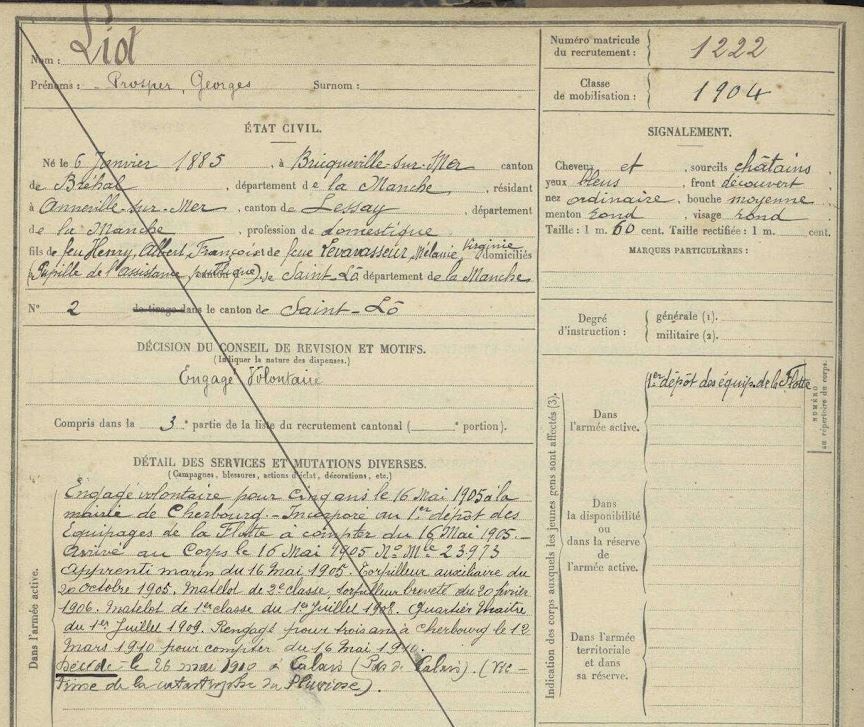 Nom : Liot
Prénoms : Prosper, Georges Surnom :
ÉTAT CIVIL.
Né le 6 Janvier 1885, à Bricqueville-sur-Mer canton
de Bréhal, département de la Manche, résidant
à Anneville-sur-Mer, canton de Lessay, département
de la Manche, profession de domestique
fils de feu Henry, Albert, François et de feue Levavasseur, Mélanie, Virginie domiciliés
(Pupille de l'assistance publique), canton de Saint-Lô département de la Manche
N° 2 de tirage dans le canton de Saint-Lô
DÉCISION DU CONSEIL DE REVISION ET MOTIFS.
(Indiquer la nature des dispenses.)
Engagé Volontaire
Compris dans la 3e partie de la liste du recrutement cantonal ( e portion).
DÉTAIL DES SERVICES ET MUTATIONS DIVERSES.
(Campagnes, blessures, actions d'éclat, décorations, etc.)
Dans l'armée active.
Engagé volontaire pour cinq ans le 16 Mai 1905 à la
mairie de Cherbourg. - Incorporé au 1er dépôt des
Equipages de la Flotte à compter du 16 Mai 1905. -
Arrivé au Corps le 16 Mai 1905 No Mle 23973
Apprenti marin du 16 Mai 1905. Torpilleur auxiliaire du
20 Octobre 1905. Matelot de 2e classe, torpilleur breveté du 20 février
1906. Matelot de 1er classe du 1er Juillet 1908. Quartier Maître
du 1er Juillet 1909. Rengagé pour trois ans à Cherbourg le 12
Mars 1910 pour compter du 16 mai 1910.
Décédé le 26 mai 1910 à Calais (Pas de Calais). (Vic-
time de la catastrophe du Pluviose).
Numéro matricule
du recrutement : 1222
Classe
de mobilisation : 1904
SIGNALEMENT.
Cheveux et, sourcils châtains,
yeux bleus, front découvert
nez ordinaire, bouche moyenne
menton rond, visage rond
Taille : 1 m. 60 cent. Taille rectifiée : 1 m. cent.
MARQUES PARTICULIÈRES :
Degré
d'instruction :
générale (1).
militaire (2).
Indication des corps auxquels les jeunes gens sont affectés (3).
Dans
l'armée active.
1er dépôt des équip. de la Flotte
NUMÉRO
au répertoire du corps.
Dans
la disponibilité
ou
dans la réserve
de
l'armée active.
Dans l'armée
territoriale
et dans
sa réserve.